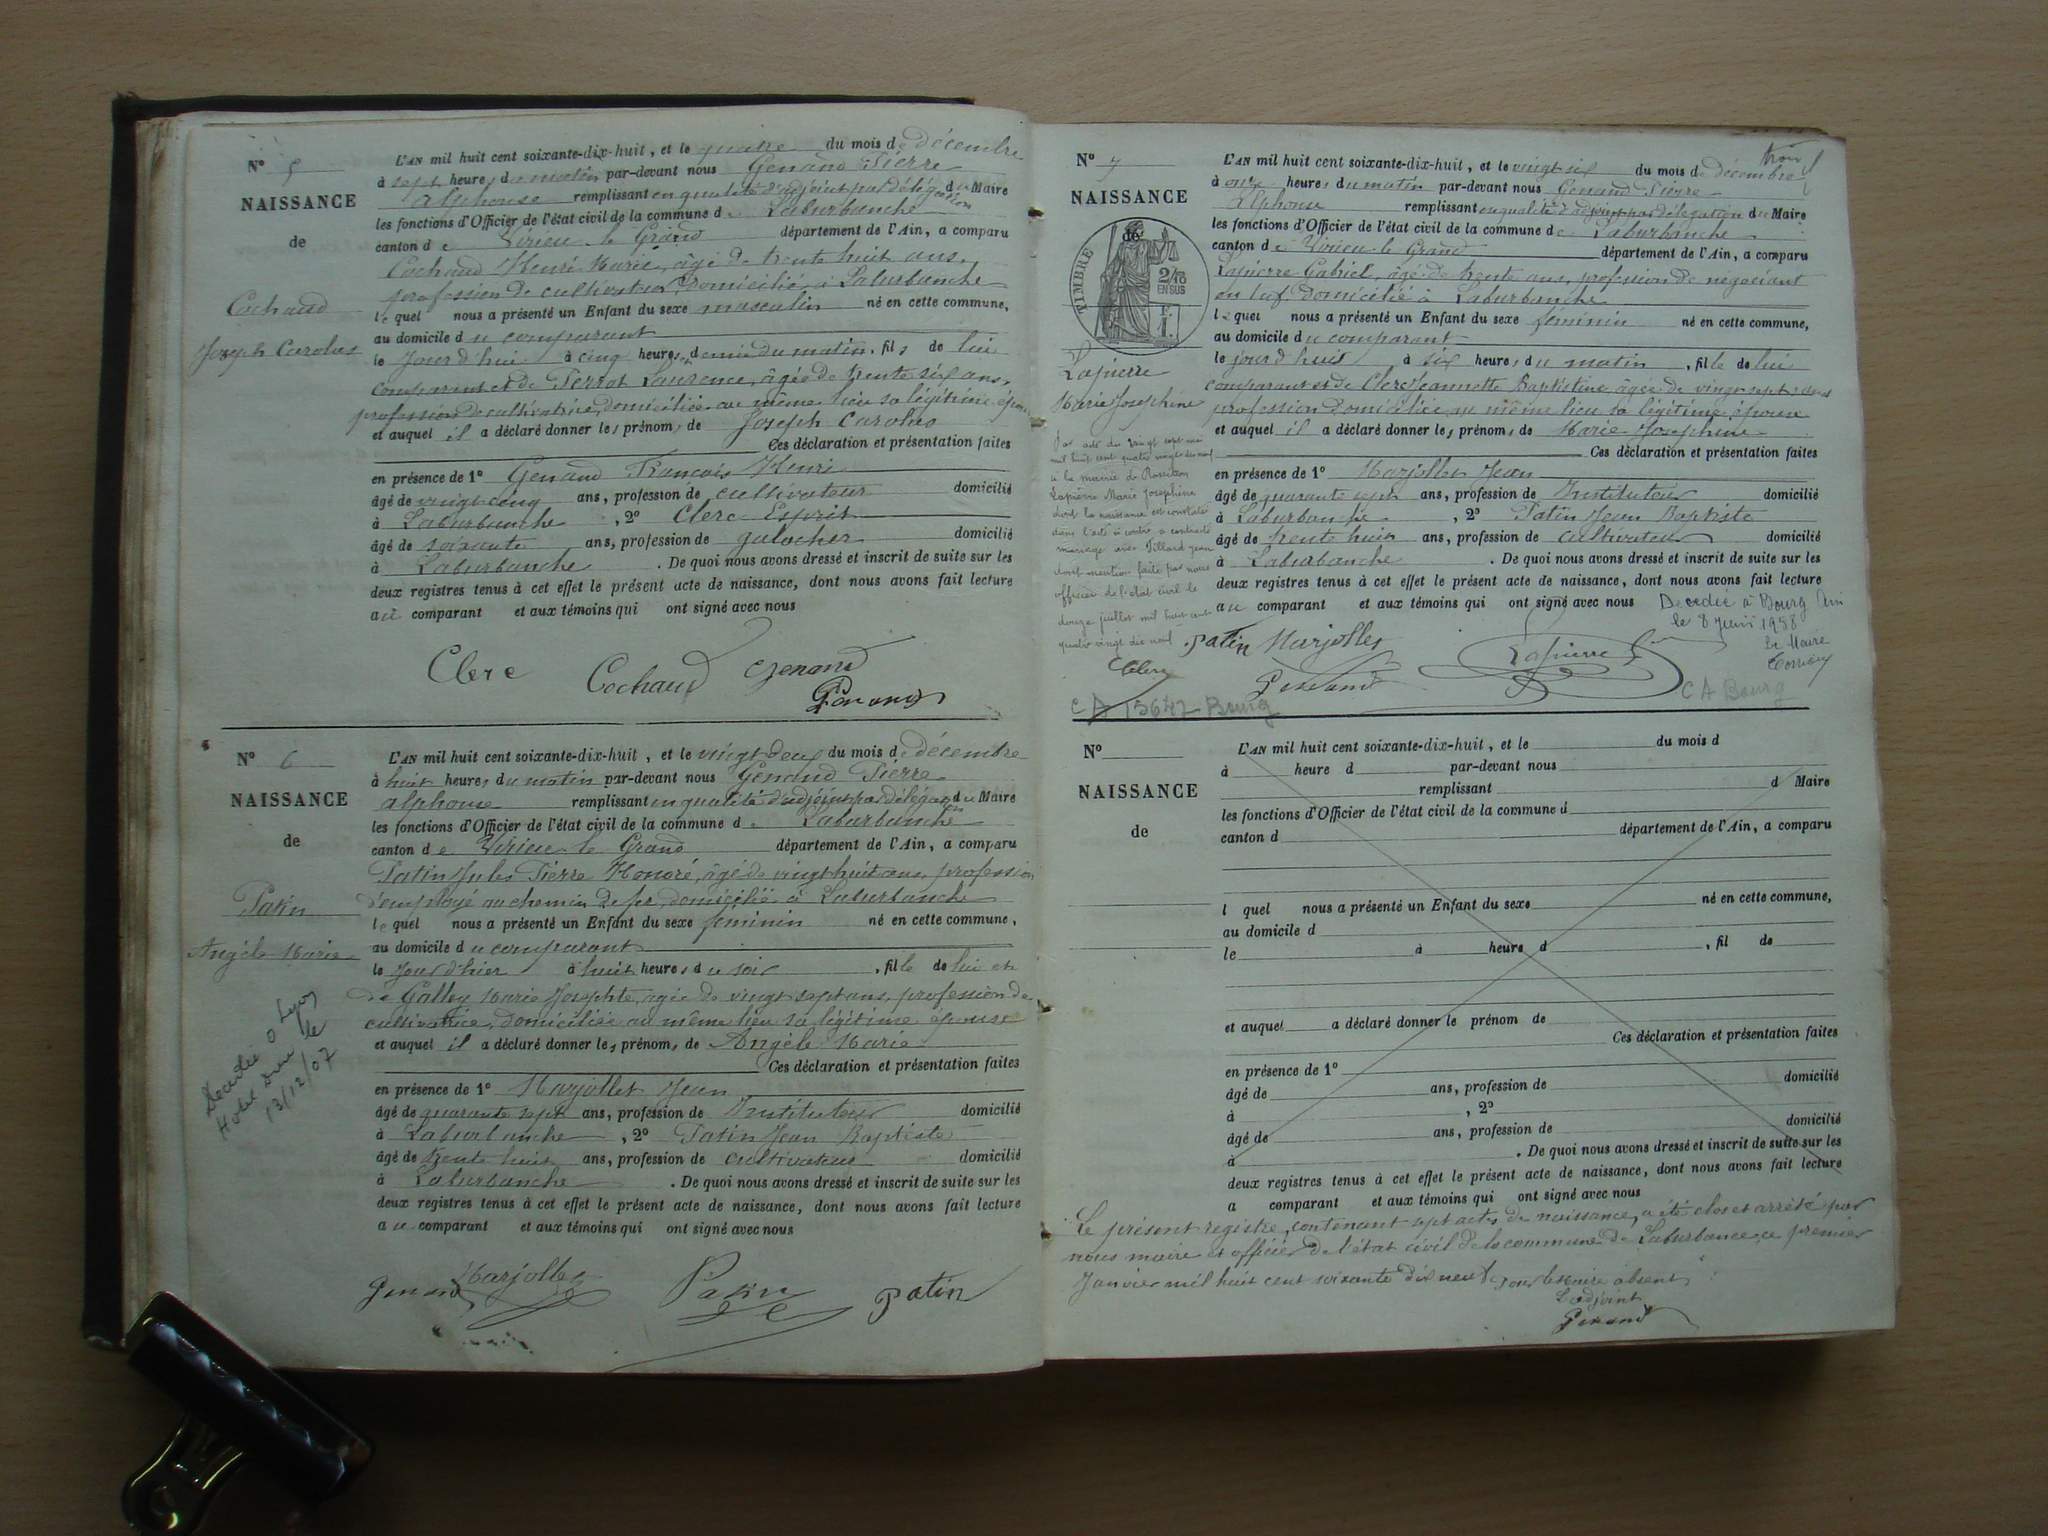 N° 5
NAISSANCE
de
Cochaud
Joseph Carolus
L'AN mil huit cent soixante-dix-huit, et le quatre du mois de décembre
à sept heures du matin par-devant nous Genand Pierre
Alphonse remplissant en qualité d'adjoint par délégation du Maire
les fonctions d'Officier de l'état civil de la commune de Laburbanche
canton de Virieu le Grand département de l'Ain, a comparu
Cochaud Henri Marie, âgé de trente huit ans,
profession de cultivateur domicilié à Laburbanche
lequel nous a présenté un Enfant du sexe masculin né en cette commune,
au domicile du comparant
le jourd'hui à cinq heures demie du matin, fils de lui
comparant et de Perrot Laurence, âgée de trente six ans,
profession de cultivatrice, domiciliée au même lieu sa légitime épouse
et auquel il a déclaré donner les prénoms de Joseph Carolus
Ces déclaration et présentation faites
en présence de 1° Genand François Henri
âgé de vingt cinq ans, profession de cultivateur domicilié
à Laburbanche, 2° Clerc Esprit
âgé de soixante ans, profession de galocher domicilié
à Laburbanche. De quoi nous avons dressé et inscrit de suite sur les
deux registres tenus à cet effet le présent acte de naissance, dont nous avons fait lecture
au comparant et aux témoins qui ont signé avec nous
Clerc Cochaud Genand
Genand
N° 6
NAISSANCE
de
Patin
Angèle Marie
Décédée à Lyon
le
13/12/07
L'AN mil huit cent soixante-dix-huit, et le vingt deux du mois de décembre
à huit heures du matin par-devant nous Genand Pierre
Alphonse remplissant en qualité d'adjoint par délégation du Maire
les fonctions d'Officier de l'état civil de la commune de Laburbanche
canton de Virieu le Grand département de l'Ain, a comparu
Patin Jules Pierre Honoré, âgé de vingt huit ans, profession
d'employé au chemin de fer, domicilié à Laburbanche
lequel nous a présenté un Enfant du sexe féminin né en cette commune,
au domicile du comparant
le jour d'hier à huit heures du soir, fille de lui et
de Galley Marie Josephte, âgée de vingt sept ans, profession de
cultivatrice, domiciliée au même lieu sa légitime épouse
et auquel il a déclaré donner les prénoms de Angèle Marie
Ces déclaration et présentation faites
en présence de 1° Marjollet Jean
âgé de quarante sept ans, profession de Instituteur domicilié
à Laburbanche, 2° Patin Jean Baptiste
âgé de trente huit ans, profession de cultivateur domicilié
à Laburbanche. De quoi nous avons dressé et inscrit de suite sur les
deux registres tenus à cet effet le présent acte de naissance, dont nous avons fait lecture
au comparant et aux témoins qui ont signé avec nous
Genand Marjollet Patin Patin
N° 7
NAISSANCE
de
TIMBRE
2/10
EN SUS
Lapierre
Marie Josephine
Par acte du vingt sept mai
mil huit cent quatre vingt dix neuf
à la mairie de Rossillon
Lapierre Marie Josephine
dont la naissance est constatée
dans l'acte ci contre a contracté
mariage avec Billard Jean
dont mention faite par nous
officier de l'état civil le
douze juillet mil huit cent
quatre vingt dix neuf
Clerc
L'AN mil huit cent soixante-dix-huit, et le vingt six du mois de décembre
à onze heures du matin par-devant nous Genand Pierre
Alphonse remplissant en qualité d'adjoint par délégation du Maire
les fonctions d'Officier de l'état civil de la commune de Laburbanche
canton de Virieu le Grand département de l'Ain, a comparu
Lapierre Gabriel, âgé de trente ans, profession de négociant
en tuf, domicilié à Laburbanche
lequel nous a présenté un Enfant du sexe féminin né en cette commune,
au domicile du comparant
le jourd'huit à six heures du matin, fille de lui
comparant et de Clerc Jeannette Baptistine âgée de vingt sept ans
profession domiciliée au même lieu sa légitime épouse
et auquel il a déclaré donner les prénoms de Marie Josephine
Ces déclaration et présentation faites
en présence de 1° Marjollet Jean
âgé de quarante sept ans, profession de Instituteur domicilié
à Laburbanche, 2° Patin Jean Baptiste
âgé de trente huit ans, profession de cultivateur domicilié
à Laburbanche. De quoi nous avons dressé et inscrit de suite sur les
deux registres tenus à cet effet le présent acte de naissance, dont nous avons fait lecture
au comparant et aux témoins qui ont signé avec nous
Décédée à Bourg Ain
le 8 juin 1958
Le Maire
Patin Marjollet Lapierre
Genand
CA 15647 Bourg
CA Bourg
N°
NAISSANCE
de
L'AN mil huit cent soixante-dix-huit, et le du mois d
à heure d par-devant nous
remplissant d Maire
les fonctions d'Officier de l'état civil de la commune d
canton d département de l'Ain, a comparu
l quel nous a présenté un Enfant du sexe né en cette commune,
au domicile d
le à heure d, fil de
et auquel a déclaré donner le prénom de
Ces déclaration et présentation faites
en présence de 1°
âgé de ans, profession de domicilié
à, 2°
âgé de ans, profession de domicilié
à. De quoi nous avons dressé et inscrit de suite sur les
deux registres tenus à cet effet le présent acte de naissance, dont nous avons fait lecture
a comparant et aux témoins qui ont signé avec nous
Le présent registre, contenant sept actes de naissance, a été clos et arrêté par
nous maire et officier de l'état civil de la commune de Laburbance, ce premier
Janvier mil huit cent soixante dix neuf Pour le Maire absent
L'adjoint
Genand